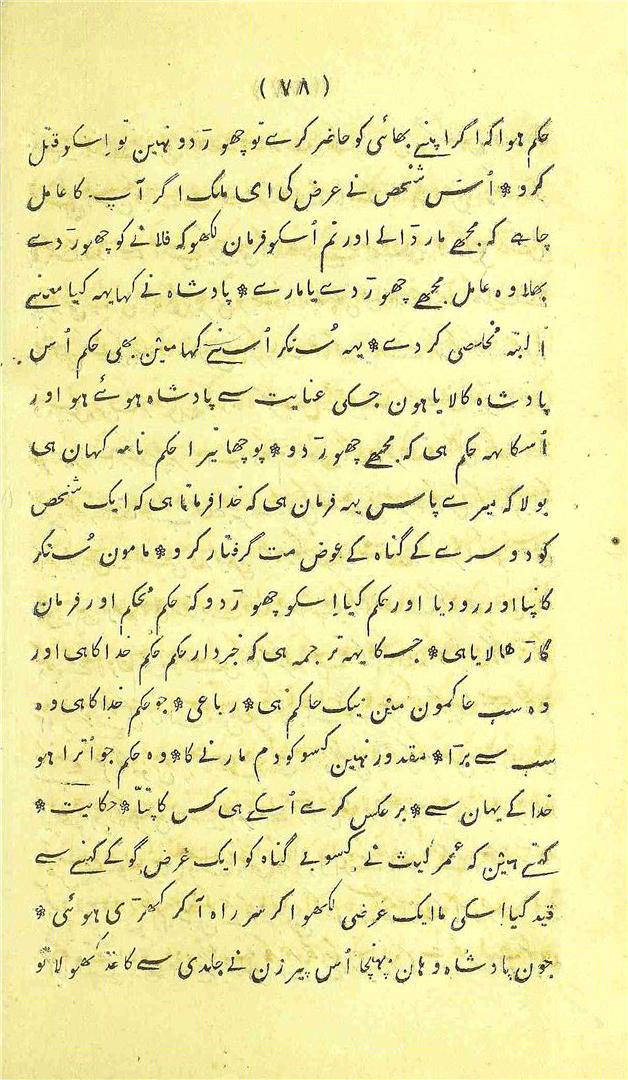 ( ۷۸ )
حکم ہوا کہ اگر اپنے بھائی کو حاضر کرے تو چھوڑ دو نہین تو اِسکو قتل
کرو * اُس شخص نے عرض کی ای مالک اگر آپ کا عامل
چاہے کہ مجھے مار ڈالے اور تم اُسکو فرمان لکھو کہ فلانے کو چھوڑ دے
بھلا وہ عامل مجھے چھوڑ دے یا مارے * پادشاہ نے کہا یہہ کیا معنے
البتّہ مخلصی کر دے * یہہ سُنکر اُسنے کہا مین بھی حکم اُس
پادشاہ کا لایا ہون جسکی عنایت سے پادشاہ ہوئے ہو اور
اُسکا یہہ حکم ہی کہ مجھے چھوڑ دو * پوچھا تیرا حکم نامہ کہان ہی
بولا کہ میرے پاس یہہ فرمان ہی کہ خدا فرماتا ہی کہ ایک شخص
کو دوسرے کے گناہ کے عوض مت گرفتار کرو * مامون سُنکر
کانپا اور رو دیا اور حکم کیا اِسکو چھوڑ دو کہ حکم مُحکم اور فرمان
گاڑھا لایا ہی * جسکا یہہ ترجمہ ہی کہ خبردار حکم حکم خدا کا ہی اور
وہ سب حاکمون مین نیک حاکم ہی * رباعی * جو حکم خدا کا ہی وہ
سب سے بڑا * مقدور نہین کسو کو دم مارنے کا * وہ حکم جو اُترا ہو
خدا کے یہان سے * برعکس کرے اُسکے ہی کس کا پتّا * حکایت *
کہتے ہین کہ عمر لیث نے کسو بے گناہ کو ایک غرض گو کے کہنے سے
قید کیا اِسکی ما ایک عرضی لکھوا کر سر راہ آ کر کھڑی ہوئی *
جون پادشاہ وہان پہنچا اُس پیر زن نے جلدی سے کاغذ کھولا تو